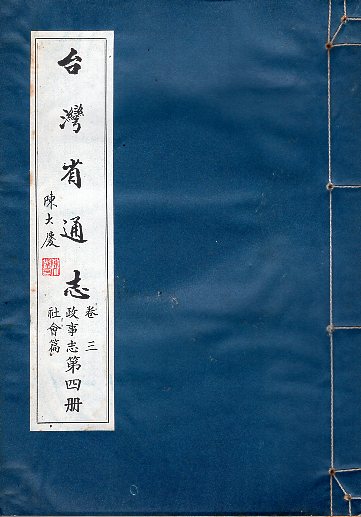 台灣省通志
陳大慶
卷三
政事志第四册
社會篇